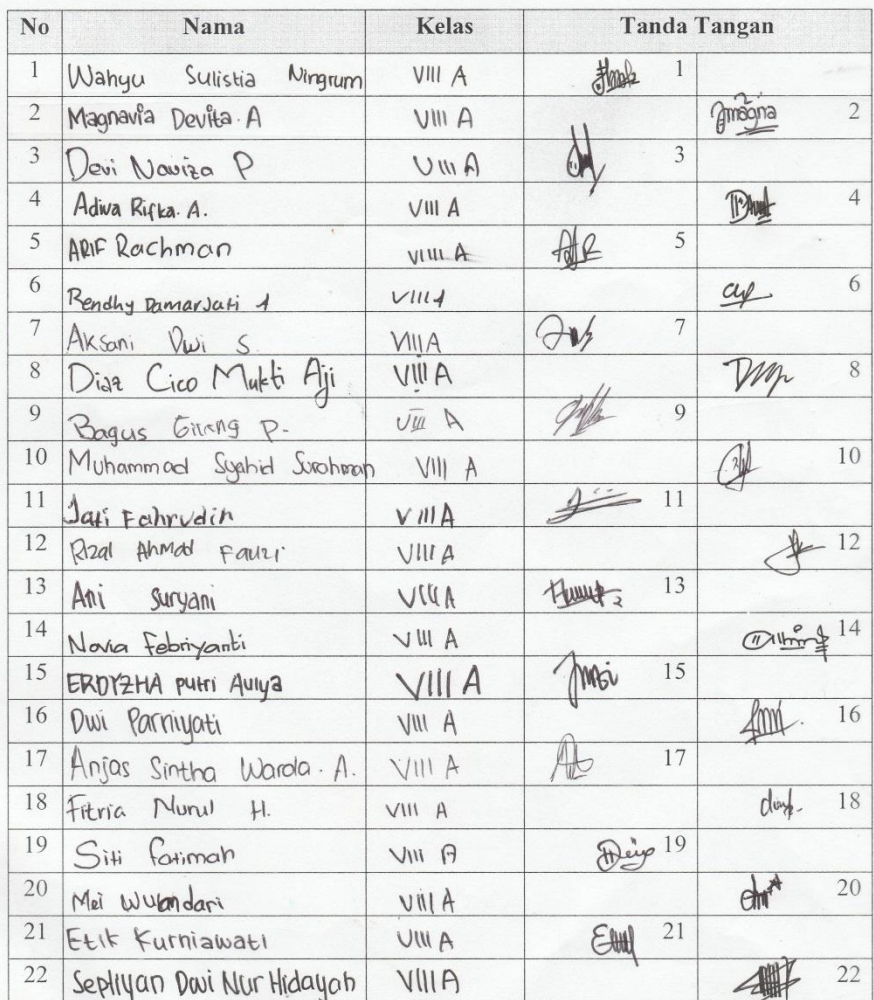 No Nama Kelas Tanda Tangan
1 Wahyu Sulistia Ningrum VIII A 1
2 Magnavia Devita. A VIII A magna 2
3 Devi Naviza P VIII A 3
4 Adiva Rifka. A. VIII A 4
5 ARIF Rachman VIIII A 5
6 Rendhy Damarjati A VIII A 6
7 Aksani Dwi S. VIII A 7
8 Diaz Cico Mukti Aji VIII A 8
9 Bagus Girang P. VIII A 9
10 Muhammad Syahid Surohman VIII A 10
11 Jati Fahrudin VIII A 11
12 Rizal Ahmad Fauzi VIII A 12
13 Ani Suryani VIII A 13
14 Novia Febriyanti VIII A 14
15 ERDYZHA Putri Auliya VIII A 15
16 Dwi Parniyati VIII A 16
17 Anjas Sintha Warda. A. VIII A 17
18 Fitria Nurul H. VIII A 18
19 Siti Fatimah VIII A 19
20 Mei Wulandari VIII A 20
21 Etik Kurniawati VIII A 21
22 Sepliyan Dwi Nur Hidayah VIII A 22